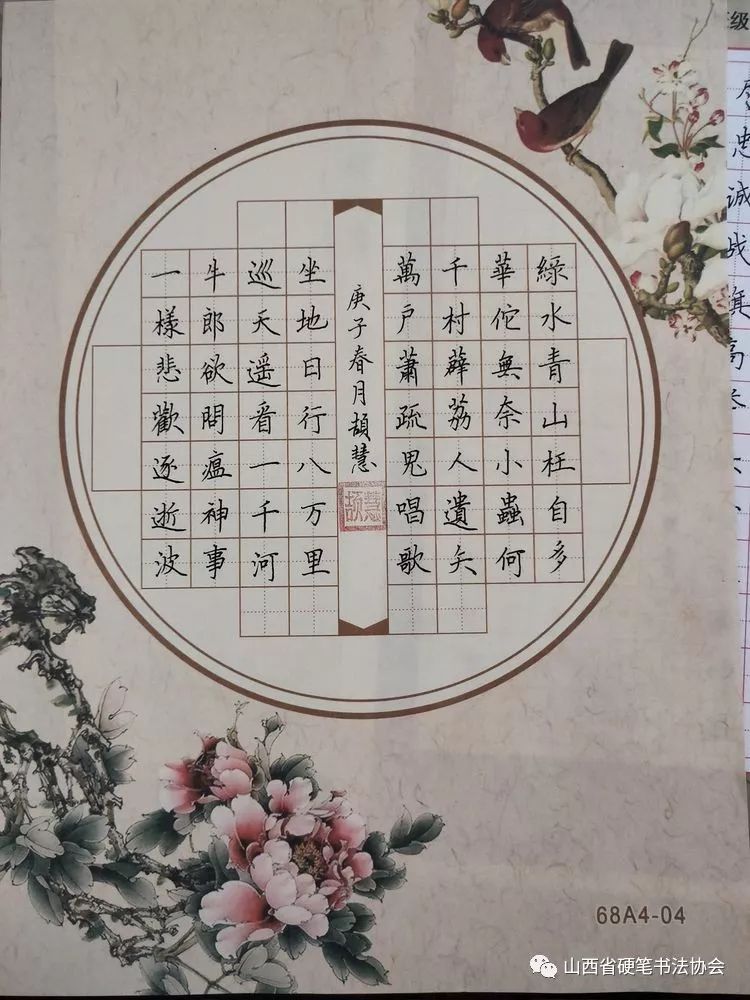 綠水青山枉自多
華佗無奈小蟲何
千村薜荔人遺矢
萬户蕭疏鬼唱歌
庚子春月頡慧
頡慧
坐地日行八万里
巡天遥看一千河
牛郎欲問瘟神事
一樣悲歡逐逝波
级
忠诚战旗高
68A4-04
山西省硬笔书法协会